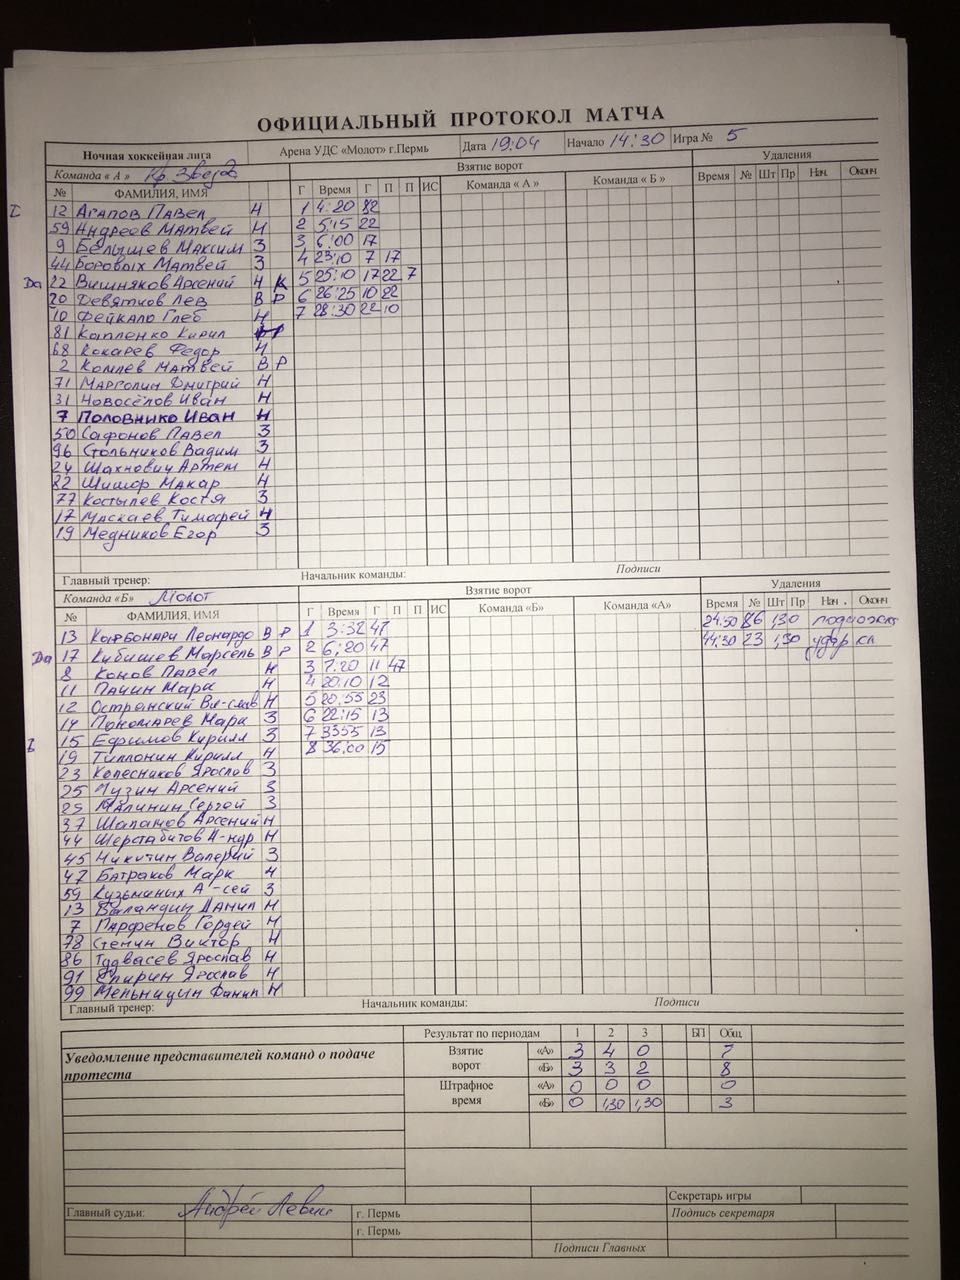 ОФИЦИАЛЬНЫЙ ПРОТОКОЛ МАТЧА
Ночная хоккейная лига Арена УДС «Молот» г.Пермь Дата 19:04 Начало 14:30 Игра № 5
Команда « А » Кр Звезда Взятие ворот Удаления
№ ФАМИЛИЯ, ИМЯ Г Время Г П П ИС Команда« А » Команда « Б » Время № Шт Пр Нач. Оконч
12 Агапов Павел Н 1 4:20 82
59 Андреев Матвей Н 2 5:15 22
9 Белышев Максим З 3 6:00 17
44 Боровых Матвей З 4 23:10 7 17
Да 22 Вишняков Арсений Н К 5 25:10 17 22 7
20 Девятков Лев В Р 6 26:25 10 22
10 Фейкало Глеб Н 7 28:30 22 10
81 Капленко Кирил
68 Кокарев Федор Н
2 Комлев Матвей В Р
71 Марголин Дмитрий Н
31 Новосёлов Иван Н
7 Половнико Иван Н
50 Сафонов Павел З
96 Стольников Вадим З
24 Шахнович Артем Н
82 Шишор Макар Н
77 Костылев Костя З
17 Маскаев Тимофей Н
19 Медников Егор З
Главный тренер: Начальник команды: Подписи
Команда «Б» Молот Взятие ворот Удаления
№ ФАМИЛИЯ, ИМЯ Г Время Г П П ИС Команда«Б» Команда«А» Время № Шт Пр Нач. Оконч
13 Карбонари Леонардо В Р 1 3:32 47 24:50 86 1,30 подножка
Да 17 Кибишев Марсель В Р 2 6:20 47 44:30 23 1,30 удар кл
8 Конов Павел Н 3 7:20 11 47
11 Панин Марк Н 4 20.10 12
12 Островский Вл-слав Н 5 20:55 23
14 Пономарев Марк З 6 22:15 13
15 Ефимов Кирилл З 7 3355 13
19 Тиллонин Кирилл Н 8 36.00 15
23 Колесников Ярослав З
25 Чузин Арсений З
29 Малинин Сергей З
37 Шаламов Арсений Н
44 Шерстабитов А-ндр Н
45 Никитин Валерий З
47 Батраков Марк Н
59 Кузьминых А-сей З
13 Валандин Данил Н
7 Парфенов Гордей Н
78 Стенин Виктор Н
86 Тудвасев Ярослав Н
91 Спирин Ярослав Н
99 Филип Н
Главный тренер: Начальник команды: Подписи
Результат по периодам 1 2 3 БП Общ.
Уведомление представителей команд о подаче протеста
Взятие ворот «А» 3 4 0 7
«Б» 3 3 2 8
Штрафное время «А» 0 0 0 0
«Б» 0 1,30 1,30 3
Секретарь игры
Главный судьи: Андрей Левин г. Пермь Подпись секретаря
г. Пермь
Подписи Главных